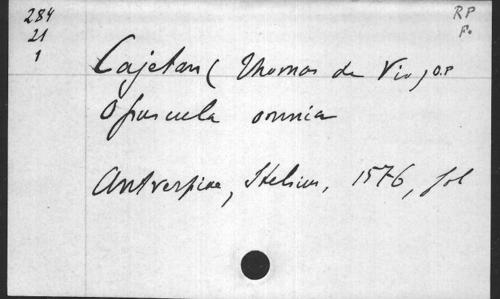 284
21
1
RP
Fo
Cajetan (Thomas de Vio) O.P
Opuscula omnia
Antverpiae, Stelsius, 1576, fol